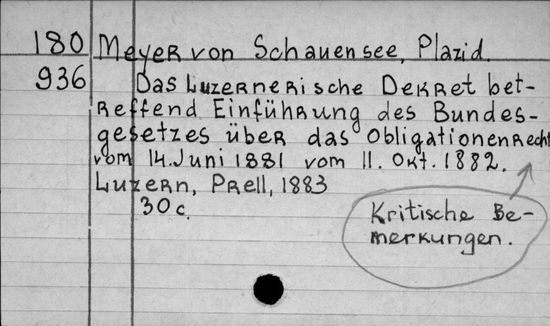 180 Meyer von Schauensee, Plazid.
936 Das Luzernerische Dekret bet-
reffend Einführung des Bundes-
gesetzes über das Obligationenrecht
vom 14. Juni 1881 vom 11. Okt. 1882.
Luzern, Prell, 1883
30 c.
Kritische Be-
merkungen.